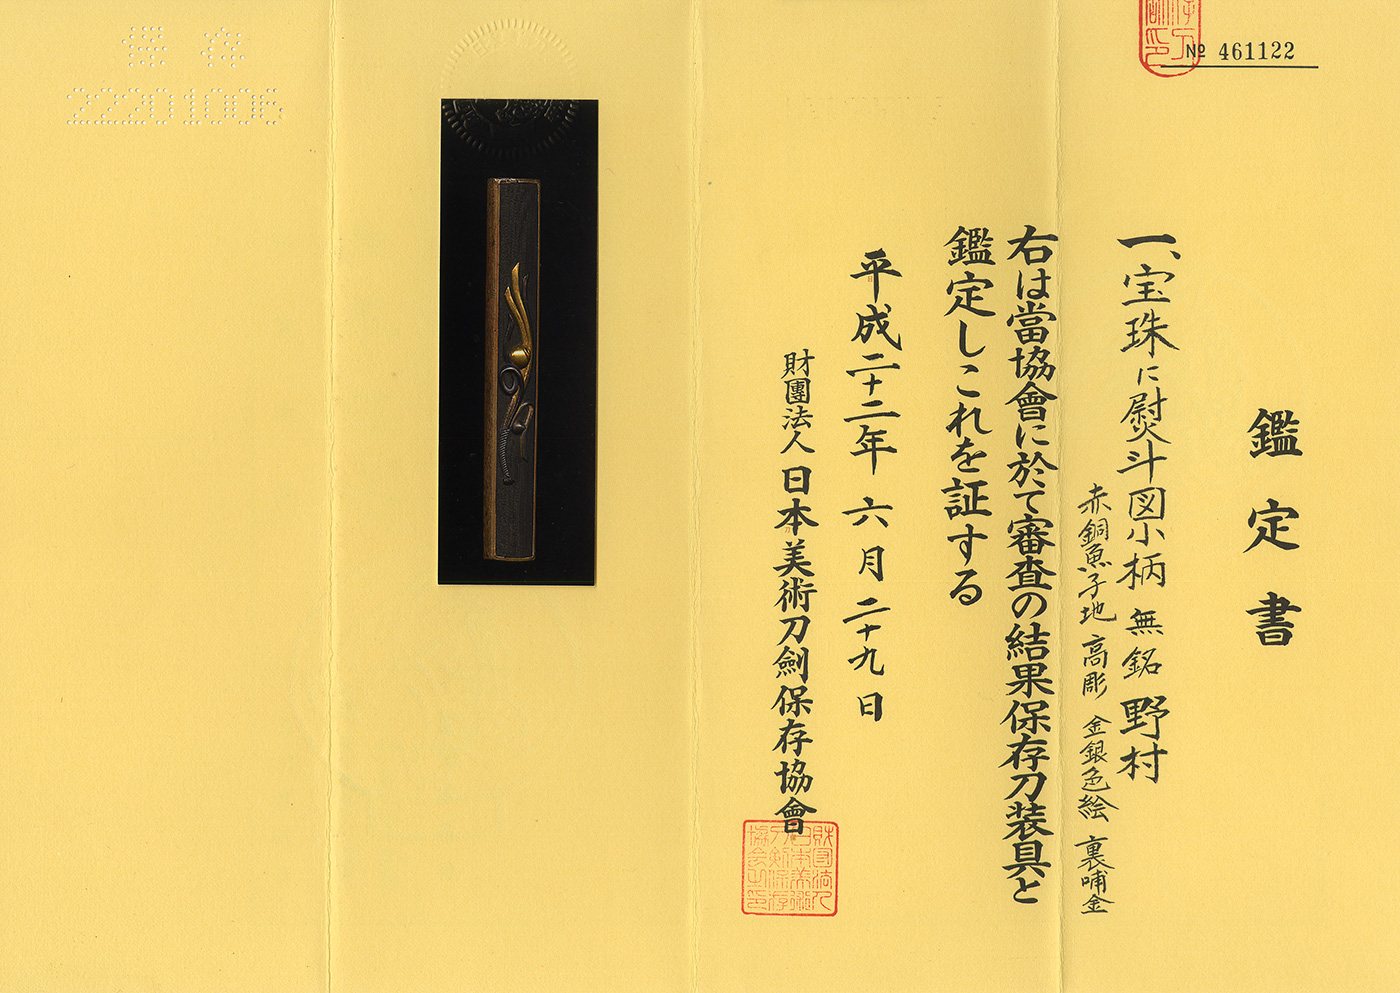 № 461122
鑑定書
一、宝珠に熨斗図小柄 無銘 野村
赤銅魚子地 高彫 金銀色絵 裏哺金
右は當協會に於て審査の結果保存刀装具と
鑑定しこれを証する
平成二十二年 六月 二十九日
財團法人 日本美術刀劍保存協會
財団法人
日本美術
刀剣保存
協会之印
保存
22201006